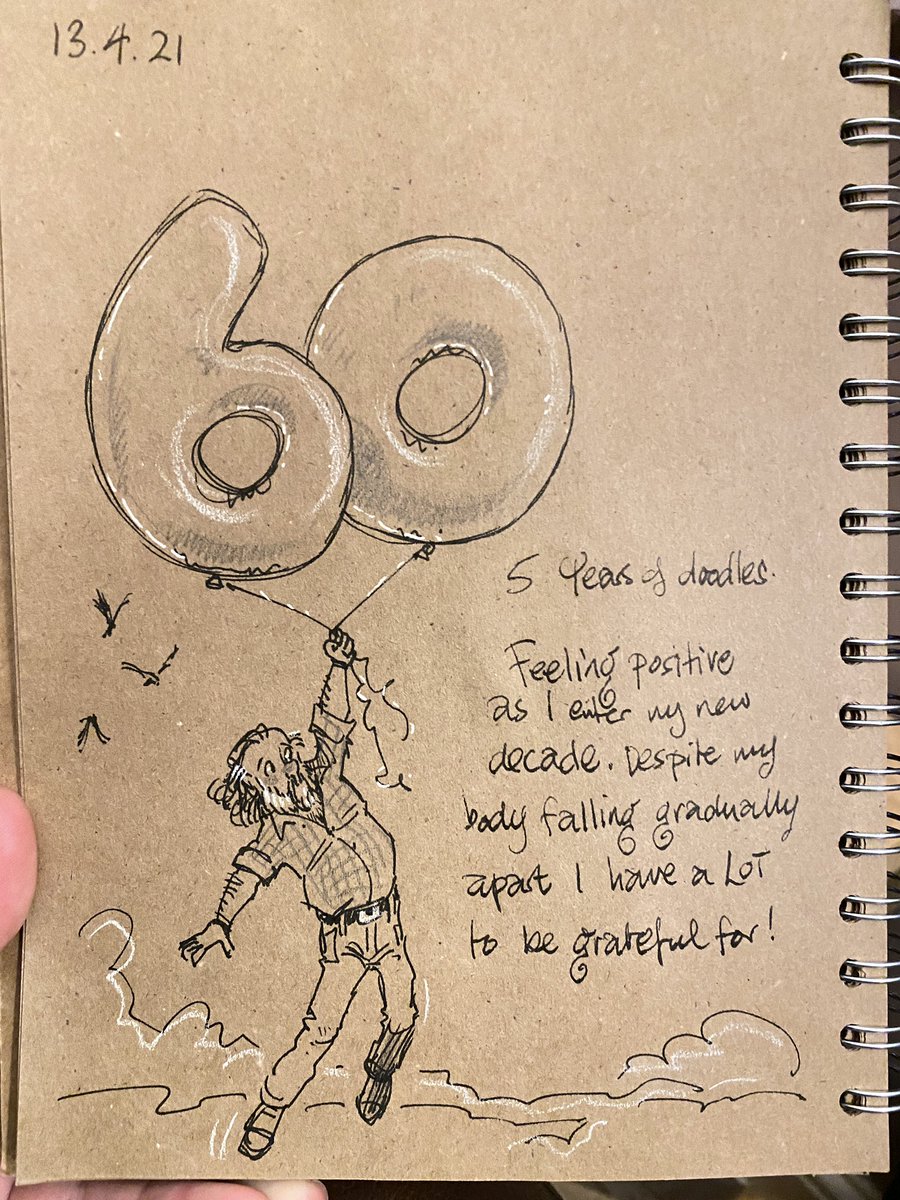 13.4.21
60
5 Years of doodles.
Feeling positive
as I enter my new
decade. Despite my
body falling gradually
apart I have a LOT
to be grateful for!